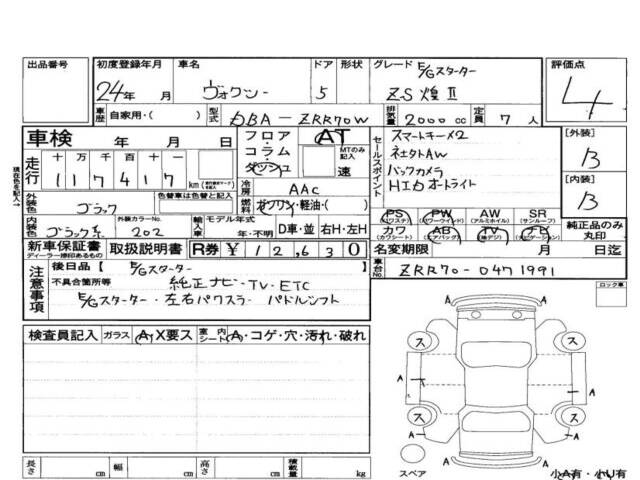 出品番号 初度登録年月 車名 ドア 形状 グレード E/Gスターター 評価点
24年 月 ヴォクシー 5 ZS 煌Ⅱ 4
車歴 自家用・( ) 型式 DBA-ZRR70W 排気量 2000cc 定員 7人
車検 年 月 日 フロア・コラム・ダッシュ AT MTのみ記入 速
セールスポイント スマートキー×2
[外装] B
走行 十万千百十 117417 km
ネェタトAW
バックカメラ
HIDオートライト
[内装] B
現在色を記入→
外装色 ブラック 色替車は色替と記入 冷房 AAC
燃料 ガソリン・軽油・( )
PS (パワステ) PW (パワーウインド) AW (アルミホイル) SR (サンルーフ) 純正品のみ丸印
内装色 ブラック系 外装カラーNo. 202 輸入車 モデル年式 年・不明 D車・並 右H・左H
カワ (カワシート) AB (エアバック) TV (地デジ) (ナビゲーション)
新車保証書 ディーラー捺印あるもの 取扱説明書 R券 ¥12,630
名変期限 月 日迄
注意事項 後日品 [ E/Gスターター ]
車台No. ZRR70-0471991
不具合箇所等 純正ナビ・TV・ETC
E/Gスターター・左右パワスラ パドルシフト
ロック車
検査員記入 ガラス A,X要ス 室内シート A・コゲ・穴・汚れ・破れ
ス ス
A A
ス ス
A A
A
スペア
長さ cm 幅 cm 高さ cm 積載量 kg
小A有・小U有